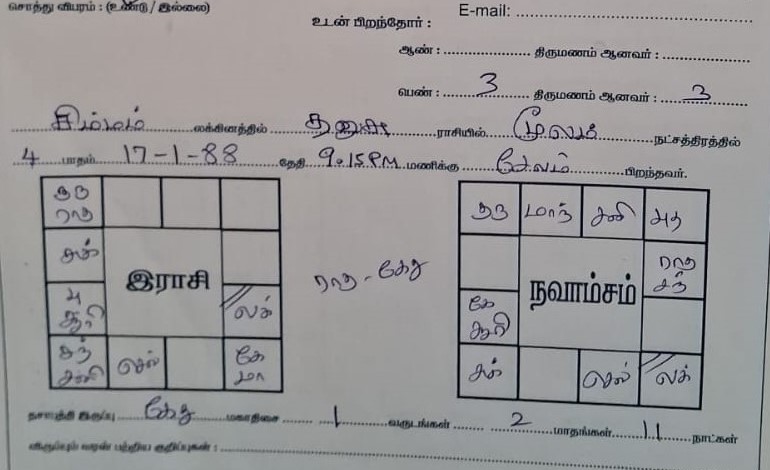 சொத்து விபரம் : (உண்டு / இல்லை)
E-mail:
உடன் பிறந்தோர் :
ஆண் : திருமணம் ஆனவர் :
பெண் : 3 திருமணம் ஆனவர் : 3
சிம்மம் லக்கினத்தில் தனுசு ராசியில் மூலம் நட்சத்திரத்தில்
4 பாதம் 17-1-88 தேதி 9.15PM மணிக்கு சேலம் பிறந்தவர்.
குரு ராகு
சுக்
இராசி
பு சூரி
லக்
சந் சனி
செவ்
கே மா
ராகு - கேது
குரு மாந் சனி புத
ராகு சந்
நவாம்சம்
கே சூரி
சுக் செவ் லக்
தசாபுத்தி இருப்பு கேது மகாதிசை 1 வருடங்கள் 2 மாதங்கள் 11 நாட்கள்
விரும்பும் வரன் பற்றிய குறிப்புகள் :